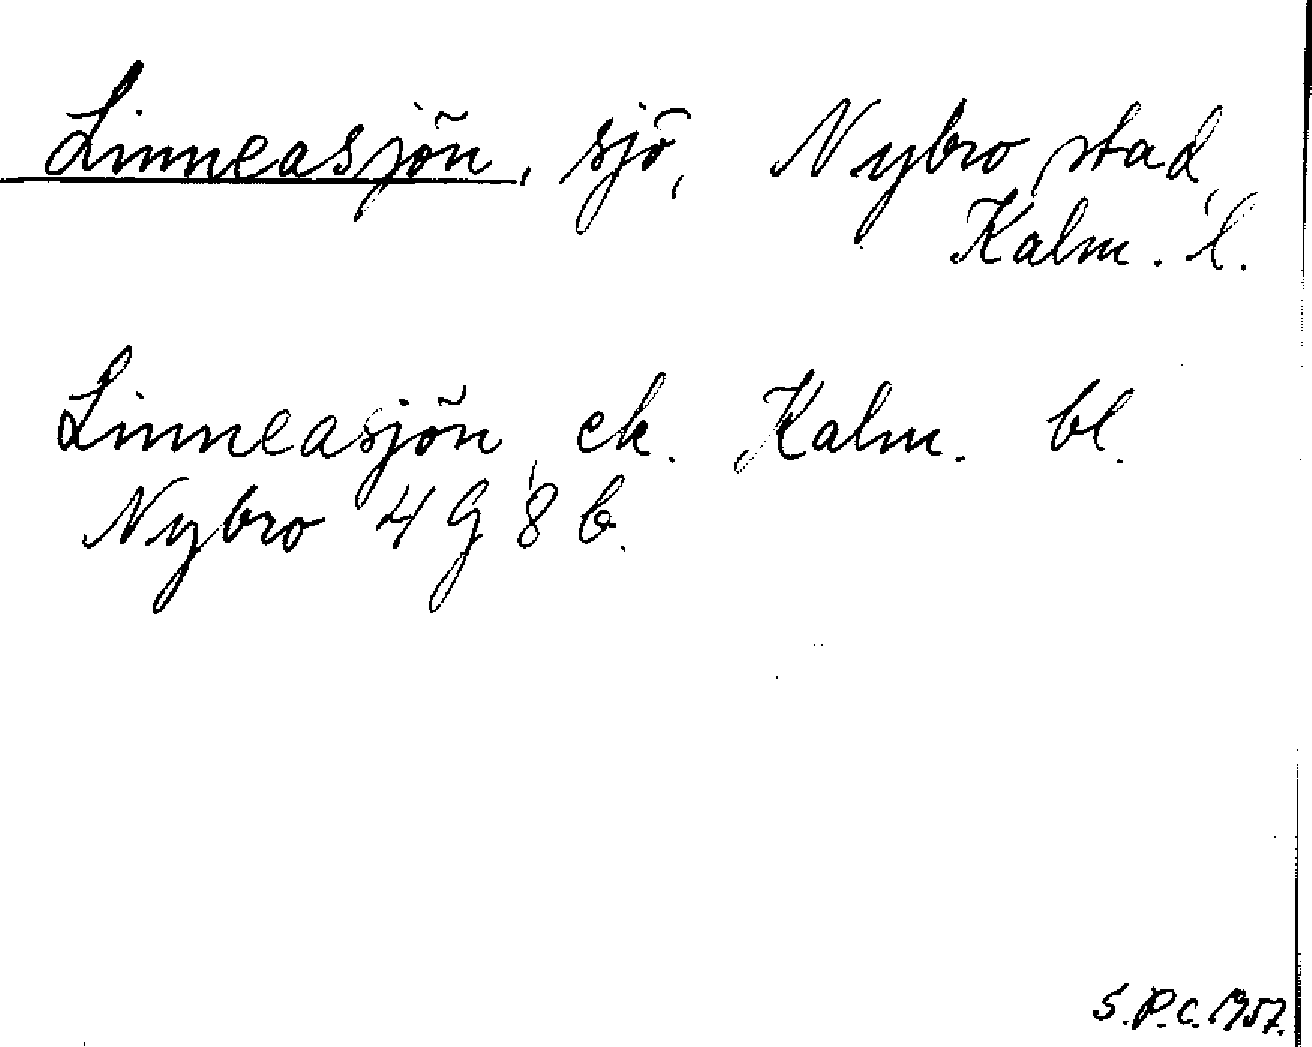 Linneasjön, sjö, Nybro stad,
Kalm. l.
Linneasjön, ek. Kalm. bl.
Nybro 4 G 8 b.
S.P.C. 1957.